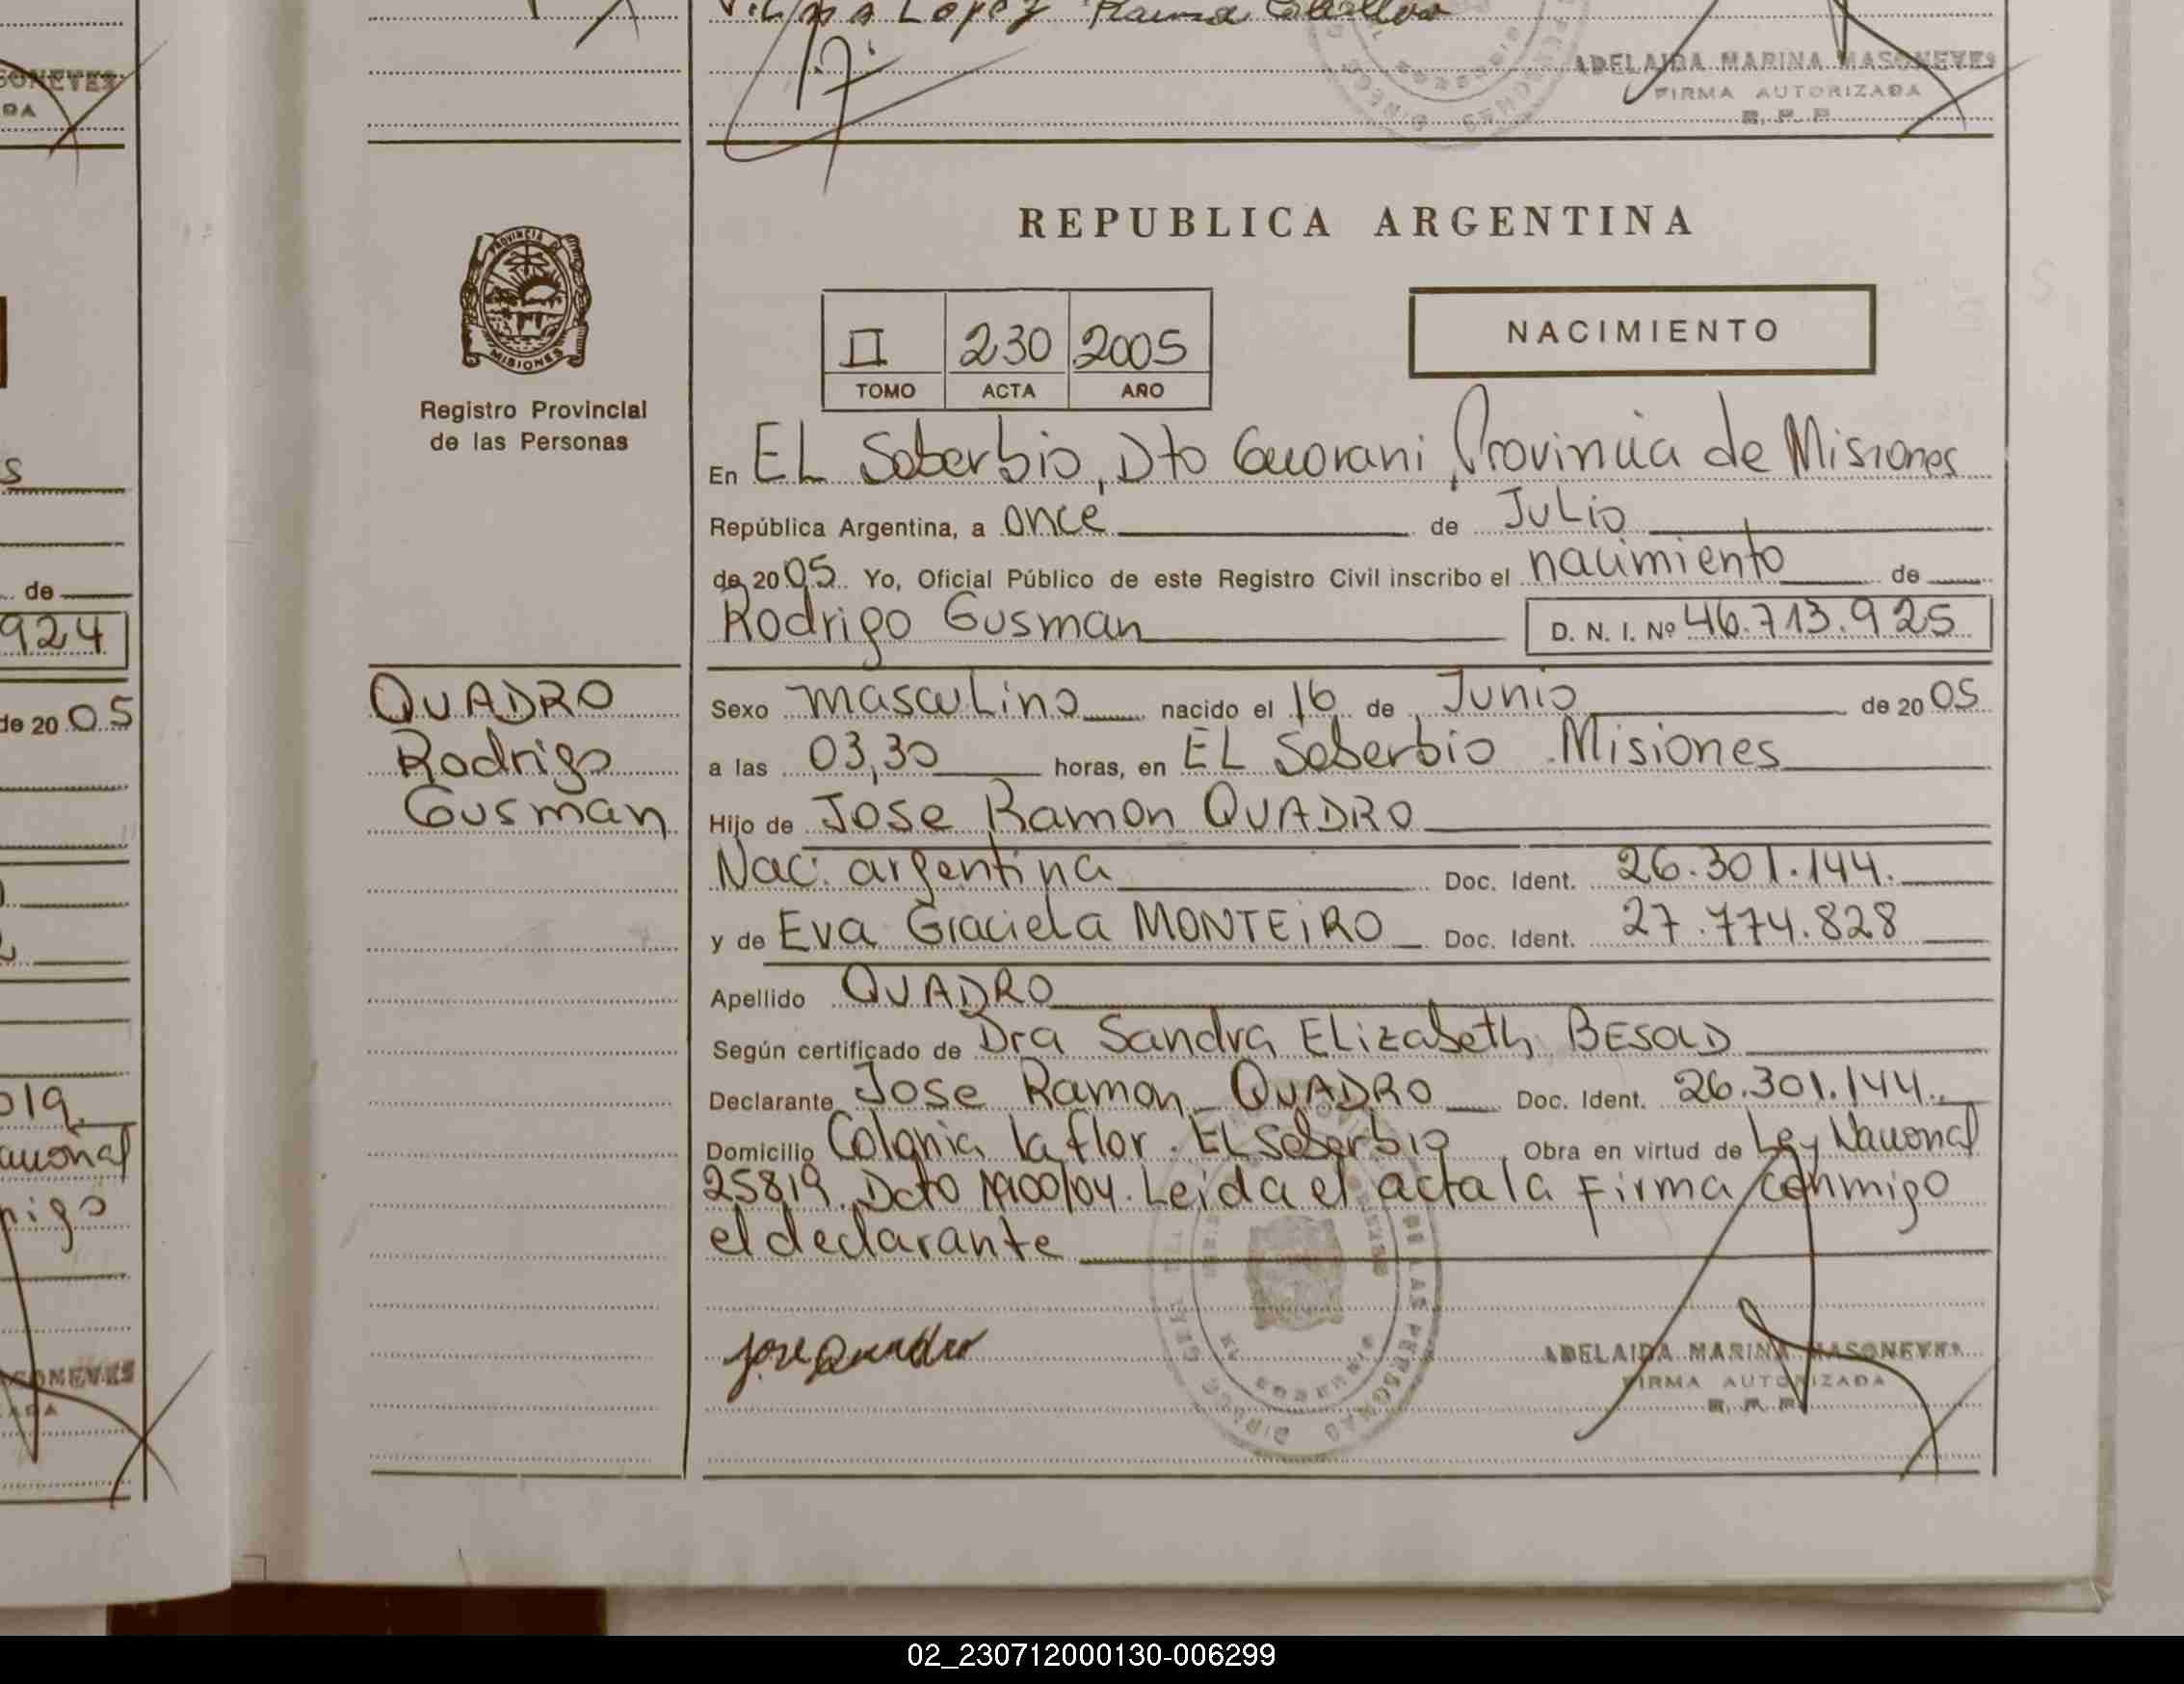 Lopez
ADELAIDA MARINA MASONEVES
FIRMA AUTORIZADA
R. P. P.
SONEVES
DA
S
de
924
de 20 05
019
Nacional
migo
SONEVES
ADA
PROVINCIA DE
MISIONES
Registro Provincial
de las Personas
QUADRO
Rodrigo
Gusman
REPUBLICA ARGENTINA
II 230 2005
TOMO ACTA AÑO
NACIMIENTO
En EL Soberbio, Dto Guarani Provincia de Misiones
República Argentina, a once de Julio
de 20 05 Yo, Oficial Público de este Registro Civil inscribo el nacimiento de
Rodrigo Gusman D. N. I. Nº 46.713.925
Sexo masculino nacido el 16 de Junio de 20 05
a las 03,30 horas, en EL Soberbio Misiones
Hijo de Jose Ramon QUADRO
Nac. argentina Doc. Ident. 26.301.144.
y de Eva Graciela MONTEIRO Doc. Ident. 27.774.828
Apellido QUADRO
Según certificado de Dra Sandra Elizabeth BESOLD
Declarante Jose Ramon QUADRO Doc. Ident. 26.301.144.
Domicilio Colonia la flor. EL Soberbio Obra en virtud de Ley Nacional
25819. Dcto 1900/04. Leida el acta la firma conmigo
el declarante
Jose Quadro
DE LAS PERSONAS
EL SOBERBIO
ADELAIDA MARINA MASONEVES
FIRMA AUTORIZADA
R. P. P.
02_230712000130-006299